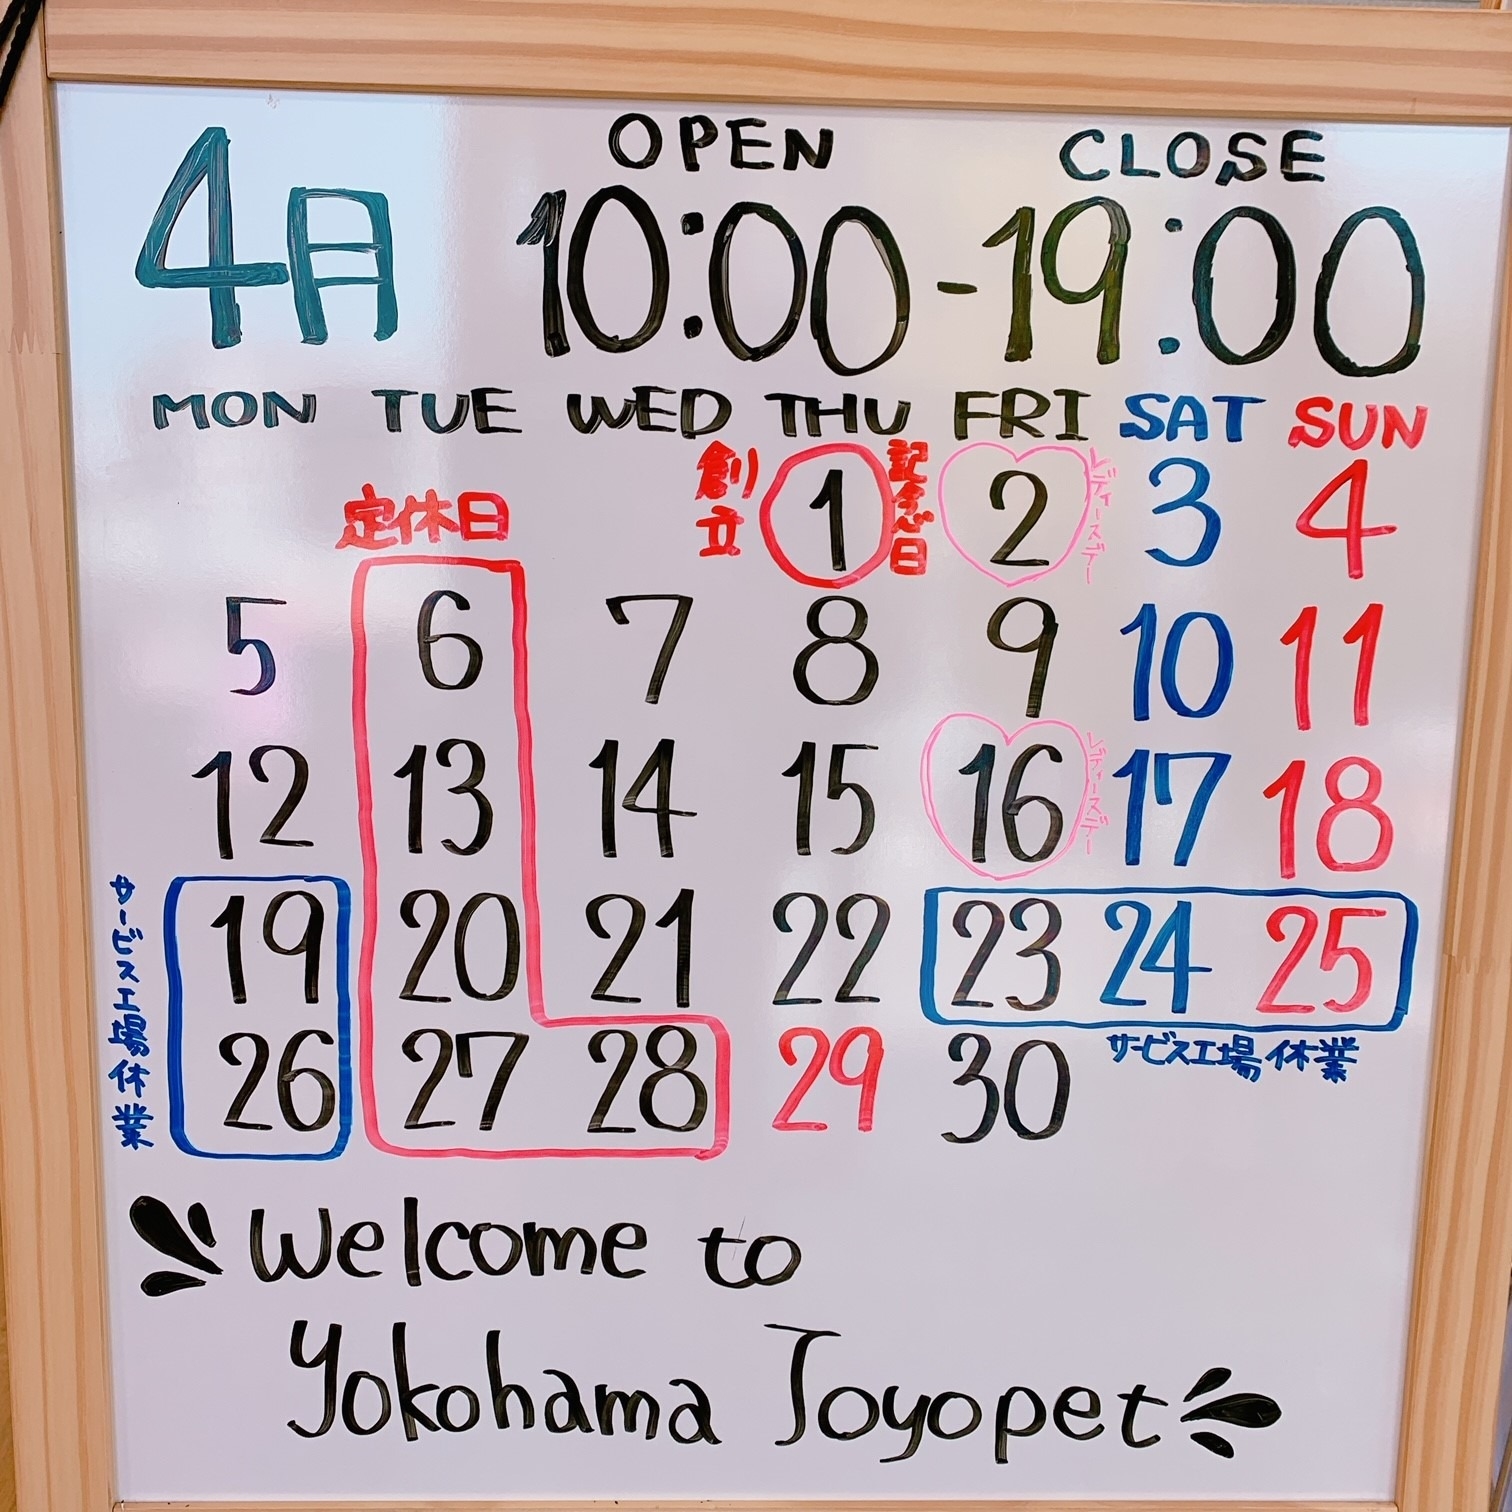 4月
OPEN CLOSE
10:00-19:00
MON TUE WED THU FRI SAT SUN
創立 1 記念日 2 レディースデー 3 4
定休日
5 6 7 8 9 10 11
12 13 14 15 16 レディースデー 17 18
19 20 21 22 23 24 25
サービス工場休業
サービス工場休業
26 27 28 29 30
Welcome to
Yokohama Toyopet